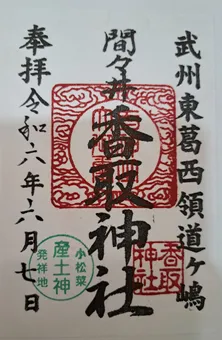 武州東葛西領道ヶ嶋
間々井
香取神社
奉拝
令和六年六月七日
香取神社
小松菜
産土神
発祥地